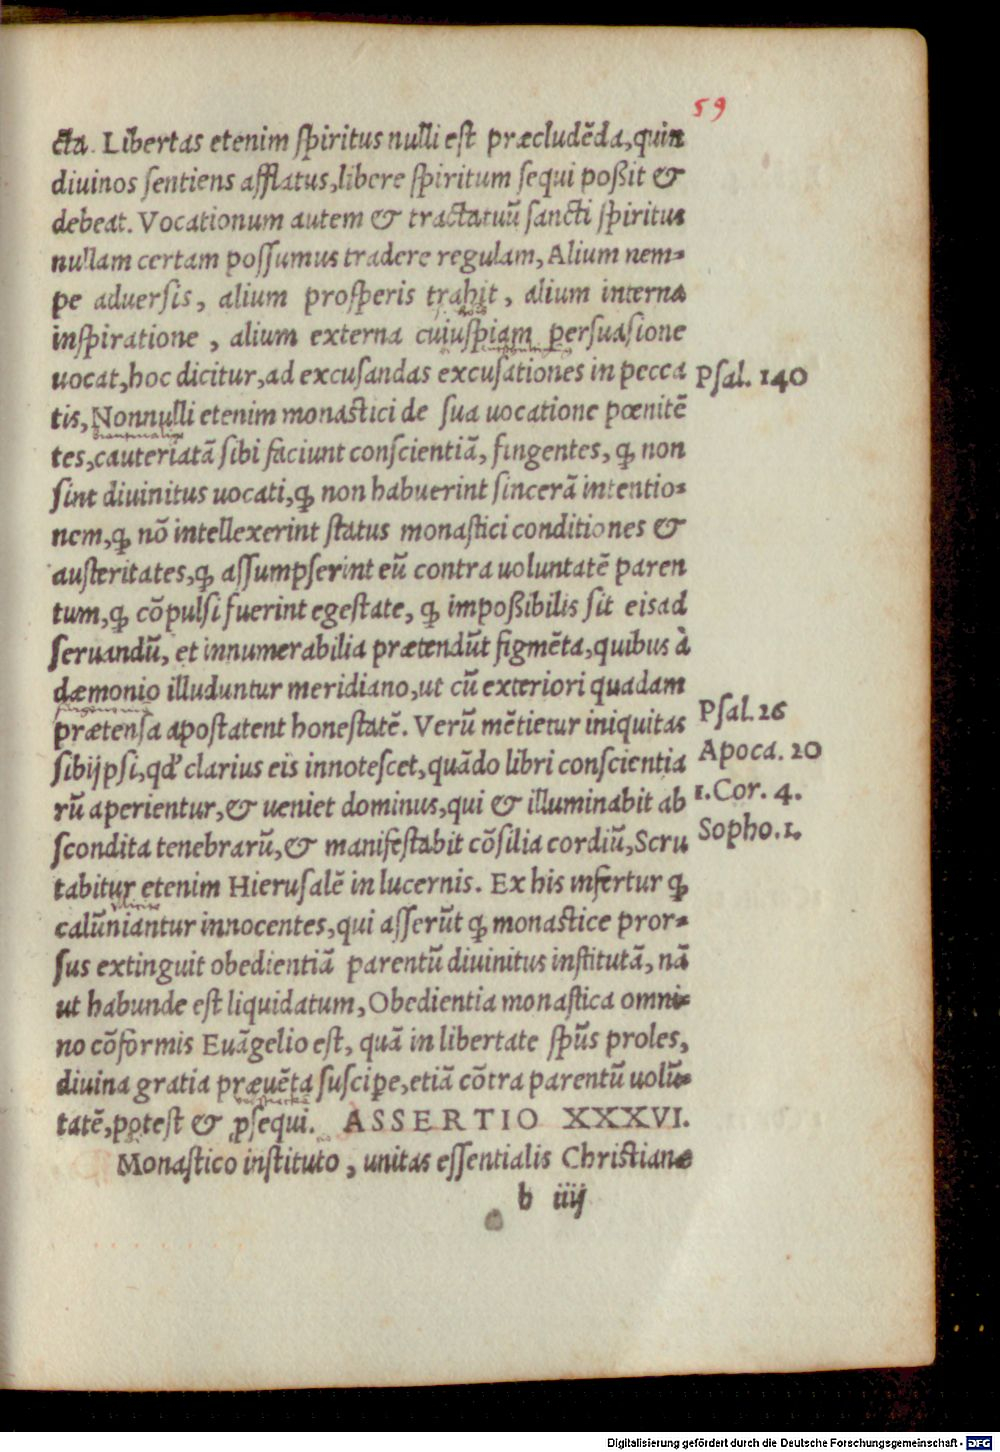 59
cta. Libertas etenim spiritus nulli est præcludẽda, quin
diuinos sentiens afflatus, libere spiritum sequi poßit &
debeat. Vocationum autem & tractatuũ sancti spiritus
nullam certam possumus tradere regulam, Alium nem=
pe aduersis, alium prosperis trahit, alium interna
inspiratione, alium externa cuiuspiam persuasione
uocat, hoc dicitur, ad excusandas excusationes in pecca
Psal. 140
tis, Nonnulli etenim monastici de sua uocatione pœnitẽ
tes, cauteriatã sibi faciunt conscientiã, fingentes, ꝙ non
sint diuinitus uocati, ꝙ non habuerint sincerã intentio=
nem, ꝙ nõ intellexerint status monastici conditiones &
austeritates, ꝙ assumpserint eũ contra uoluntatẽ paren
tum, ꝙ cõpulsi fuerint egestate, ꝙ impoßibilis sit eis ad
seruandũ, et innumerabilia prætendũt figmẽta, quibus à
dæmonio illuduntur meridiano, ut cũ exteriori quadam
prætensa apostatent honestatẽ. Verũ mẽtietur iniquitas
Psal. 26
sibijpsi, qđ clarius eis innotescet, quãdo libri conscientia
Apoca. 20
rũ aperientur, & ueniet dominus, qui & illuminabit ab
1. Cor. 4.
scondita tenebrarũ, & manifestabit cõsilia cordiũ, Scru
Sopho. 1.
tabitur etenim Hierusalẽ in lucernis. Ex his infertur ꝙ
calũniantur innocentes, qui asserũt ꝙ monastice pror=
sus extinguit obedientiã parentũ diuinitus institutã, nã
ut habunde est liquidatum, Obedientia monastica omni=
no cõformis Euãgelio est, quã in libertate spũs proles,
diuina gratia præuẽta suscipe, etiã cõtra parentũ uolũ=
tatẽ, potest & ꝓsequi. ASSERTIO XXXVI.
Monastico instituto, unitas essentialis Christianæ
b iiij
Digitalisierung gefördert durch die Deutsche Forschungsgemeinschaft - DFG